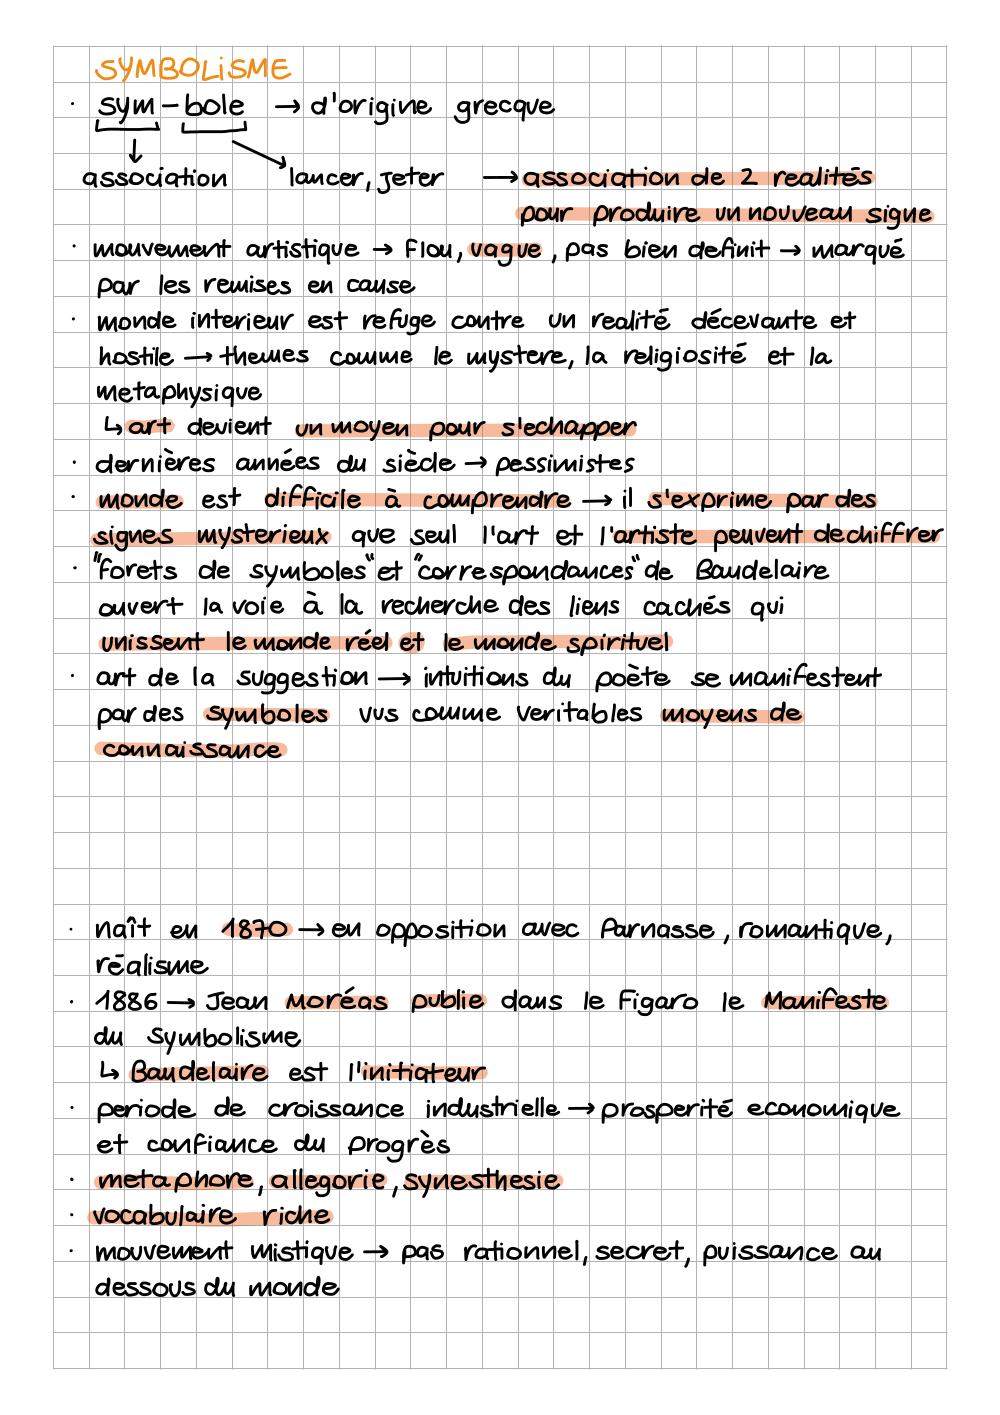 SYMBOLiSME
· sym-bole → d'origine grecque
association lancer, jeter → association de 2 realités
pour produire un nouveau signe
· mouvement artistique → flou, vague, pas bien definit → marqué
par les remises en cause
· monde interieur est refuge contre un realité décevante et
hostile → themes comme le mystere, la religiosité et la
metaphysique
↳ art devient un moyen pour s'echapper
· dernières années du siècle → pessimistes
· monde est difficile à comprendre → il s'exprime par des
signes mysterieux que seul l'art et l'artiste peuvent dechiffrer
· "forets de symboles" et "correspondances" de Baudelaire
ouvert la voie à la recherche des liens cachés qui
unissent le monde réel et le monde spirituel
· art de la suggestion → intuitions du poète se manifestent
par des symboles vus comme veritables moyens de
connaissance
· naît en 1870 → en opposition avec Parnasse, romantique,
réalisme
· 1886 → Jean Moréas publie dans le Figaro le Manifeste
du Symbolisme
↳ Baudelaire est l'initiateur
· periode de croissance industrielle → prosperité economique
et confiance du progrès
· metaphore, allegorie, synesthesie
· vocabulaire riche
· mouvement mistique → pas rationnel, secret, puissance au
dessous du monde